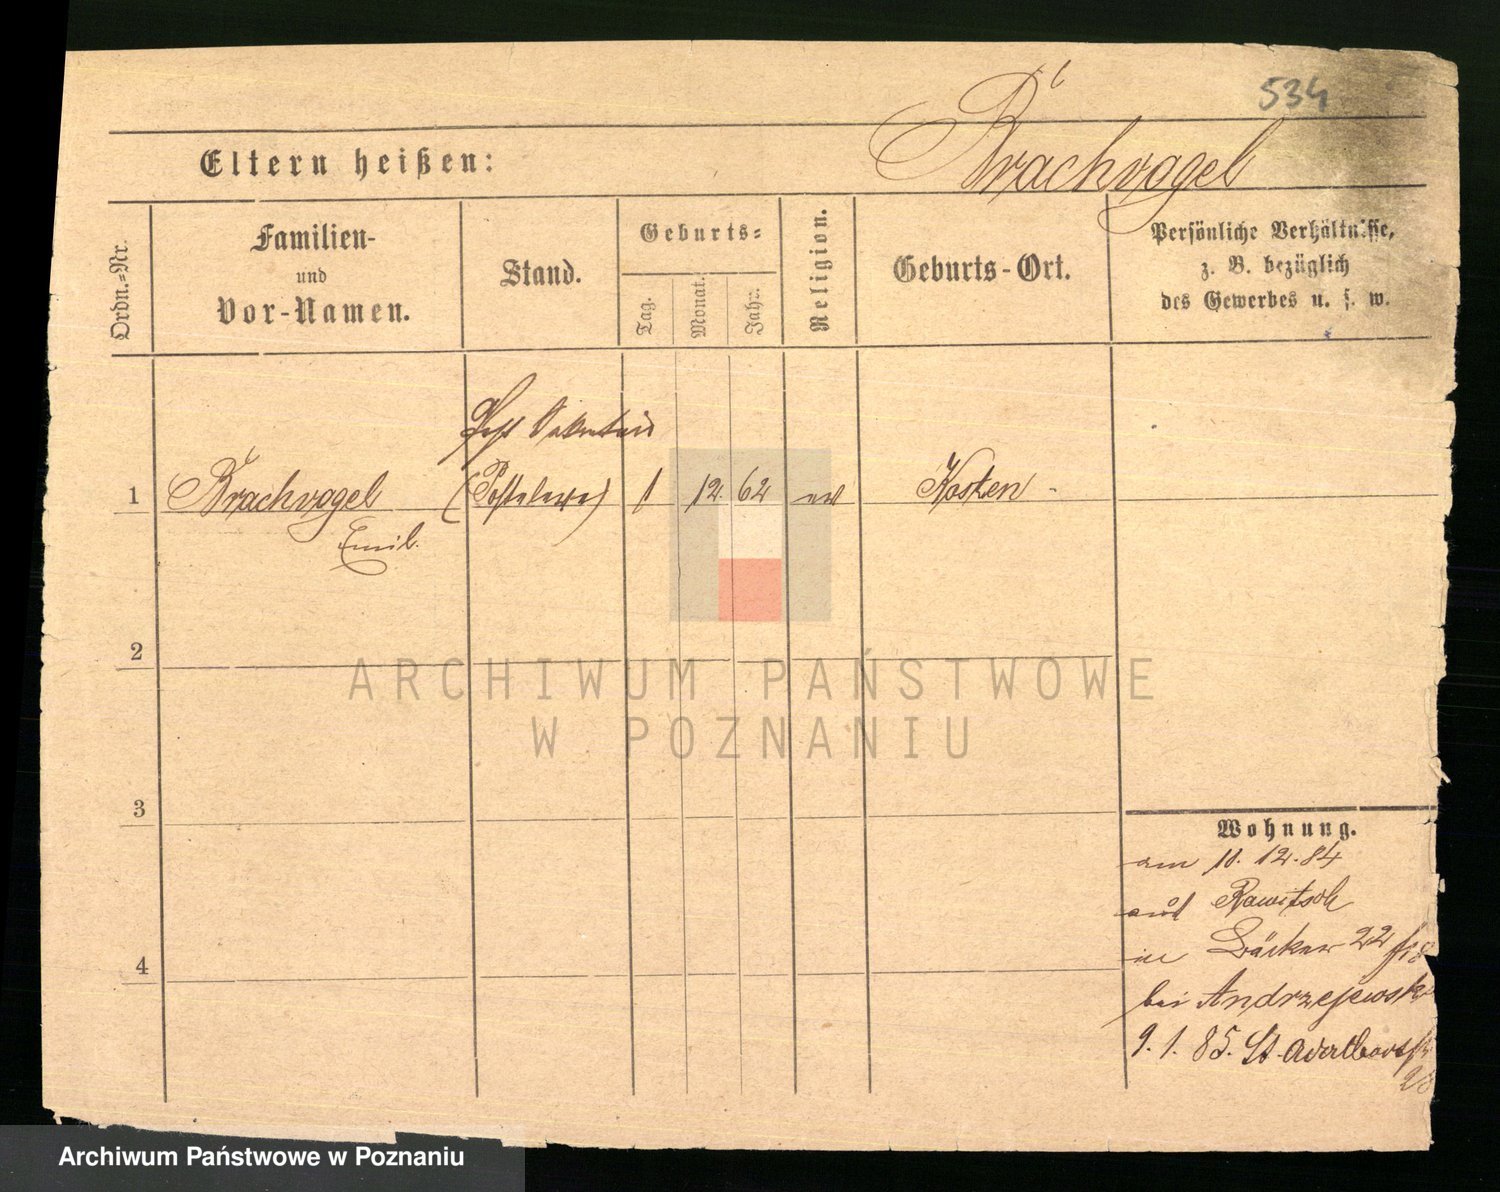 534
Brachvogel
Eltern heißen:
Ordn.-Nr.
Familien-
und
Vor-Namen.
Stand.
Geburts-
Tag.
Monat.
Jahr.
Religion.
Geburts-Ort.
Persönliche Verhältnisse,
z. B. bezüglich
des Gewerbes u. s. w.
Post Sekretär
1 Brachvogel (Posteleve) 1 12. 62 ev Kosten
Emil.
2
3
4
Wohnung.
am 11. 12. 84
aus Rawitsch
in Bäcker 22
bei Andrzejewski
9. 1. 85. St. Adalbertstr
28
ARCHIWUM PAŃSTWOWE
W POZNANIU
Archiwum Państwowe w Poznaniu